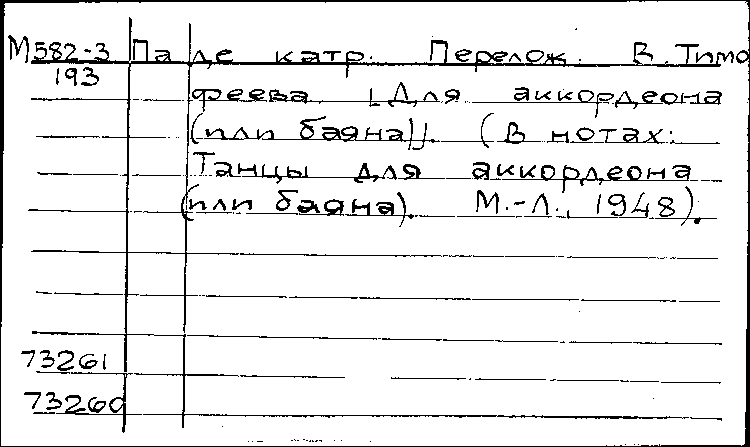 М582-3 Па де катр. Перелож. В. Тимо
193
феева. [Для аккордеона
(или баяна)]. (В нотах:
Танцы для аккордеона
(или баяна). М.-Л., 1948).
73261
73260